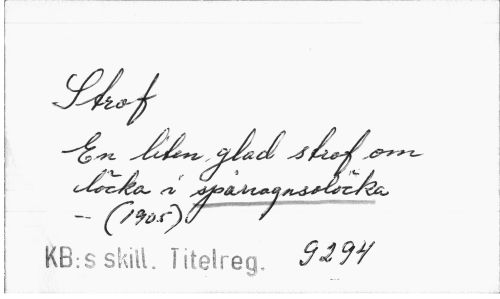 Strof
En liten glad strof om
löcka i spårvagnsolöcka
— (1905)
KB:s skill. Titelreg. 9294